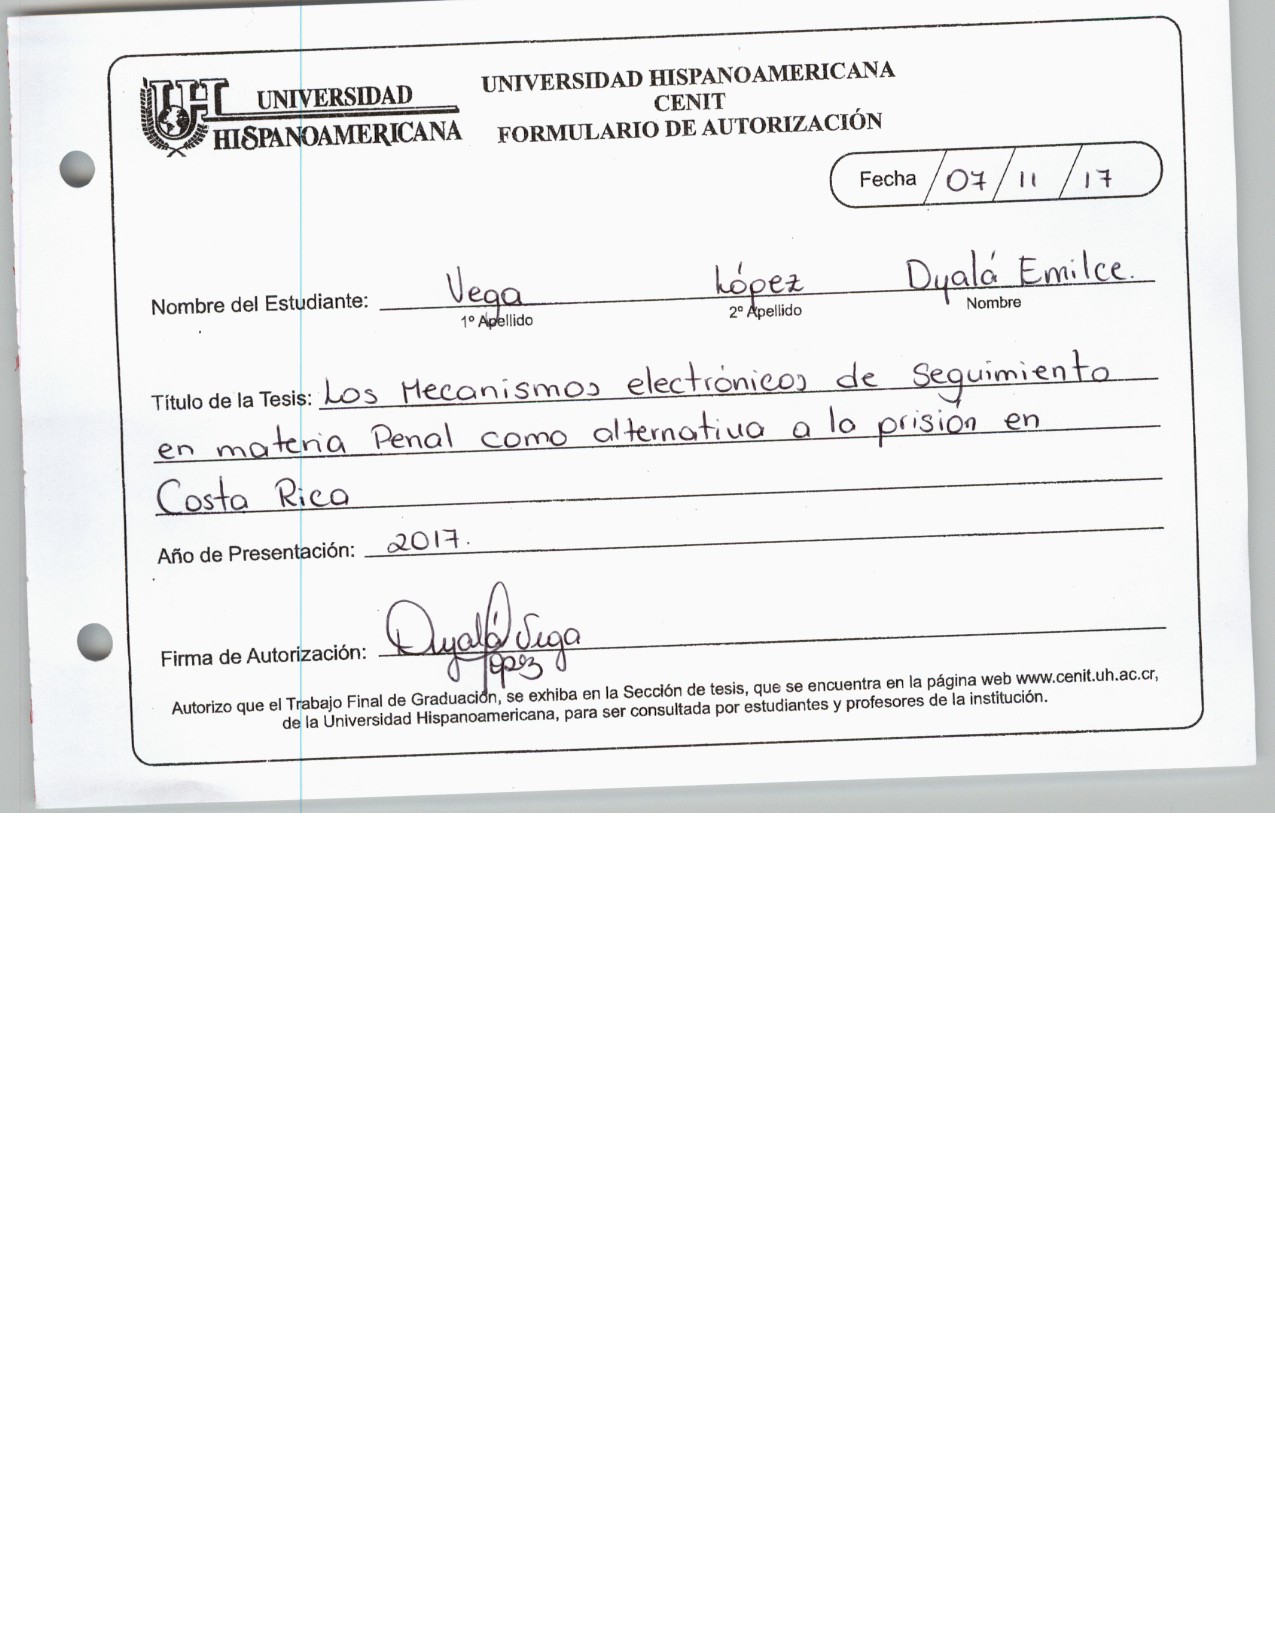 UNIVERSIDAD
HISPANOAMERICANA
UNIVERSIDAD HISPANOAMERICANA
CENIT
FORMULARIO DE AUTORIZACIÓN
Fecha / 07 / 11 / 17
Nombre del Estudiante: Vega López Dyalá Emilce.
1º Apellido 2º Apellido Nombre
Título de la Tesis: Los Mecanismos electrónicos de Seguimiento
en materia Penal como alternativa a la prisión en
Costa Rica
Año de Presentación: 2017.
Firma de Autorización: Dyalá Vega
López
Autorizo que el Trabajo Final de Graduación, se exhiba en la Sección de tesis, que se encuentra en la página web www.cenit.uh.ac.cr,
de la Universidad Hispanoamericana, para ser consultada por estudiantes y profesores de la institución.